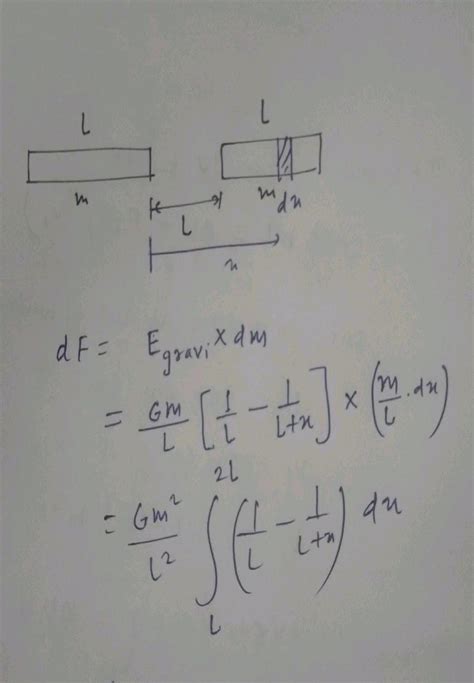 L L
m m dx
L
x
dF = E gravi × dm
= Gm/L [1/L - 1/(L+x)] × (m/L . dx)
= Gm²/L² ∫_L^{2L} (1/L - 1/(L+x)) dx